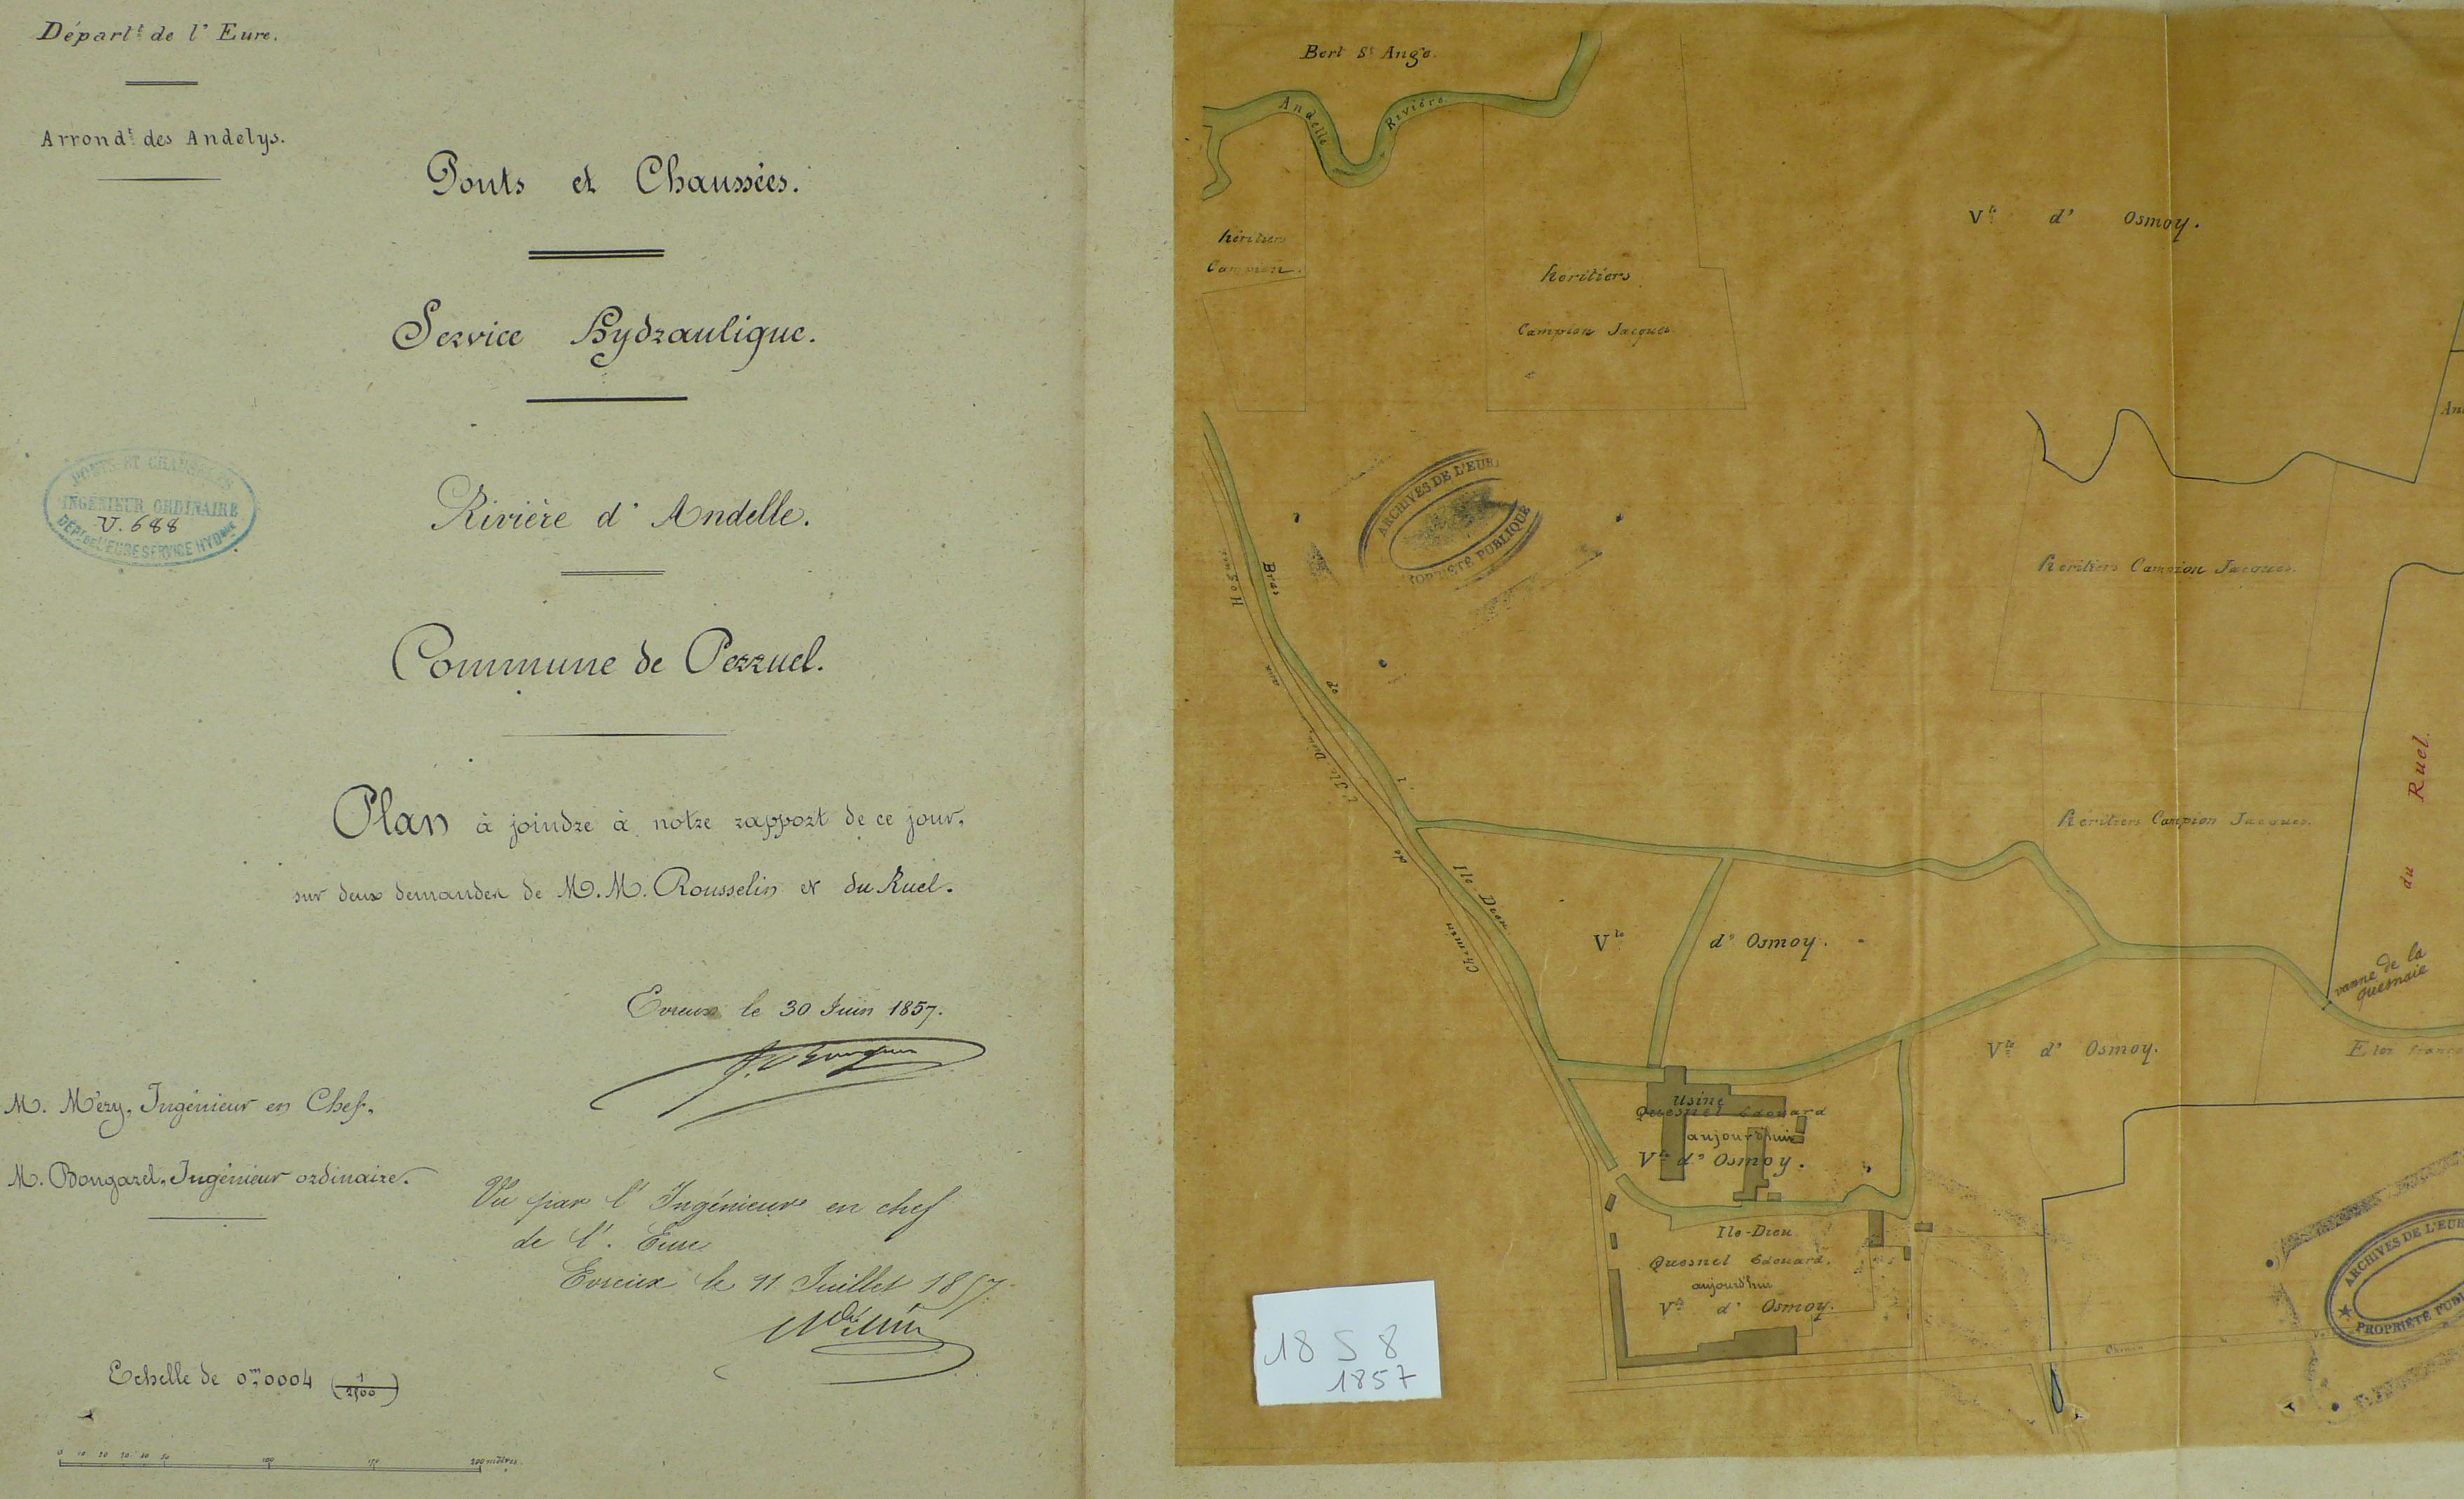 Départ.t de l'Eure.
Arrond.t des Andelys.
Ponts et Chaussées.
Service Hydraulique.
PONTS ET CHAUSSÉES
INGÉNIEUR ORDINAIRE
V. 688
DEPT DE L'EURE SERVICE HYDQUE
Rivière d'Andelle.
Commune de Perruel.
Plan à joindre à notre rapport de ce jour,
sur deux demandes de M.M. Rousselin et du Ruel.
Evreux le 30 Juin 1857.
M. Méry, Ingénieur en Chef.
M. Bougarel, Ingénieur ordinaire.
Vu par l'Ingénieur en chef
de l'Eure
Evreux le 11 Juillet 1857
Méry
Echelle de 0m,0004 (1/2500)
0 10 20 30 40 50 100 150 200 mètres
Bert St Ange.
Andelle Rivière
héritiers
Campion.
héritiers
Campion Jacques.
Vte d' Osmoy.
ARCHIVES DE L'EURE
PROPRIÉTÉ PUBLIQUE
héritiers Campion Jacques.
héritiers Campion Jacques.
du Ruel.
Bras de l' Ile Dieu
Chemin de l'Ile Dieu aux Hogues
Vte d' Osmoy.
vanne de la
quesnaie
Vte d' Osmoy.
Usine
Quesnel Edouard
aujourd'hui
Vte d' Osmoy.
Ile-Dieu
Quesnel Edouard.
aujourd'hui
Vte d' Osmoy.
Chemin
ARCHIVES DE L'EUR
PROPRIÉTÉ PUBL
18 S 8
1857